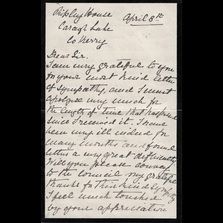 Ripley House April 8th
Caragh Lake
Co Kerry
Dear Sir,
I am very grateful to you
for your most kind letter
of sympathy, and I must
apologise very much for
the length of time that has passed
since I received it. I have
been very ill indeed for
many months and found
letters a very great difficulty.
Will you please convey
to the council my grateful
thanks for their kind sympathy
I feel much touched
by your appreciation